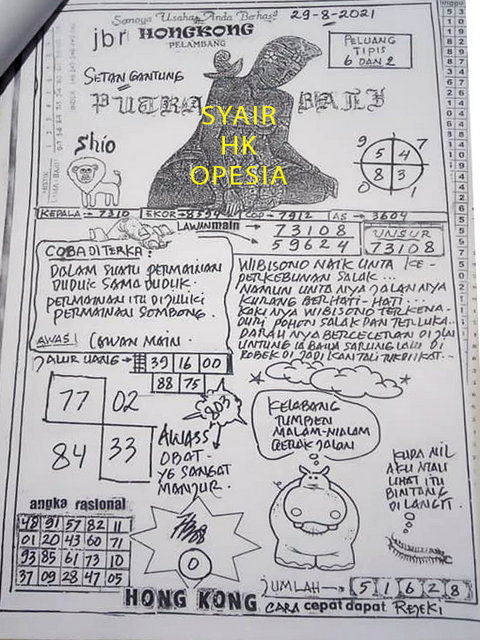 Semoga Usaha Anda Berhasil
29-8-2021
jbr HONGKONG
PELAMBANG
PELUANG
TIPIS
6 DAN 2
SETAN GANTUNG
PUTRA BALI
SYAIR
HK
OPESIA
Shio
9 7
5 4
8 3
0 1
KEPALA → 7310 EKOR → 8594 COP → 7912 AS → 3604
LAWAN main → 73108
59624
UNSUR
73108
COBA DITERKA:
DALAM SUATU PERMAINAN
DUDUK SAMA DUDUK.
PERMAINAN ITU DIJULUKI
PERMAINAN SOMBONG.
AWAS! LAWAN MAIN.
WIBISONO NAIK UNTA KE-
PERKEBUNAN SALAK...
NAMUN UNTA NYA JALANNYA
KURANG BERHATI-HATI...
KAKI NYA WIBISONO TERKENA
DURI POHON SALAK DAN TERLUKA..
DARAH NYA BERCECERAN DI JLN
UNTUNG IA BAWA SARUNG LALU DI
ROBEK DI JADIKAN TALI TUK DI IKAT...
JALUR UANG → 39 16 00
88 75
77 02
84 33
803
AWASS
OBAT-
YE SANGAT
MANJUR.
KELABANG
TUMBEN
MALAM-MALAM
GERAK JALAN
KUDA NIL
AKU MAU
LIHAT ITU
BINTANG
DI LANGIT.
angka rasional
48 91 57 82 11
01 20 43 60 71
93 85 61 73 10
37 09 28 47 05
0
JUMLAH → 5 1 6 2 8
HONG KONG
CARA cepat dapat REJEKI